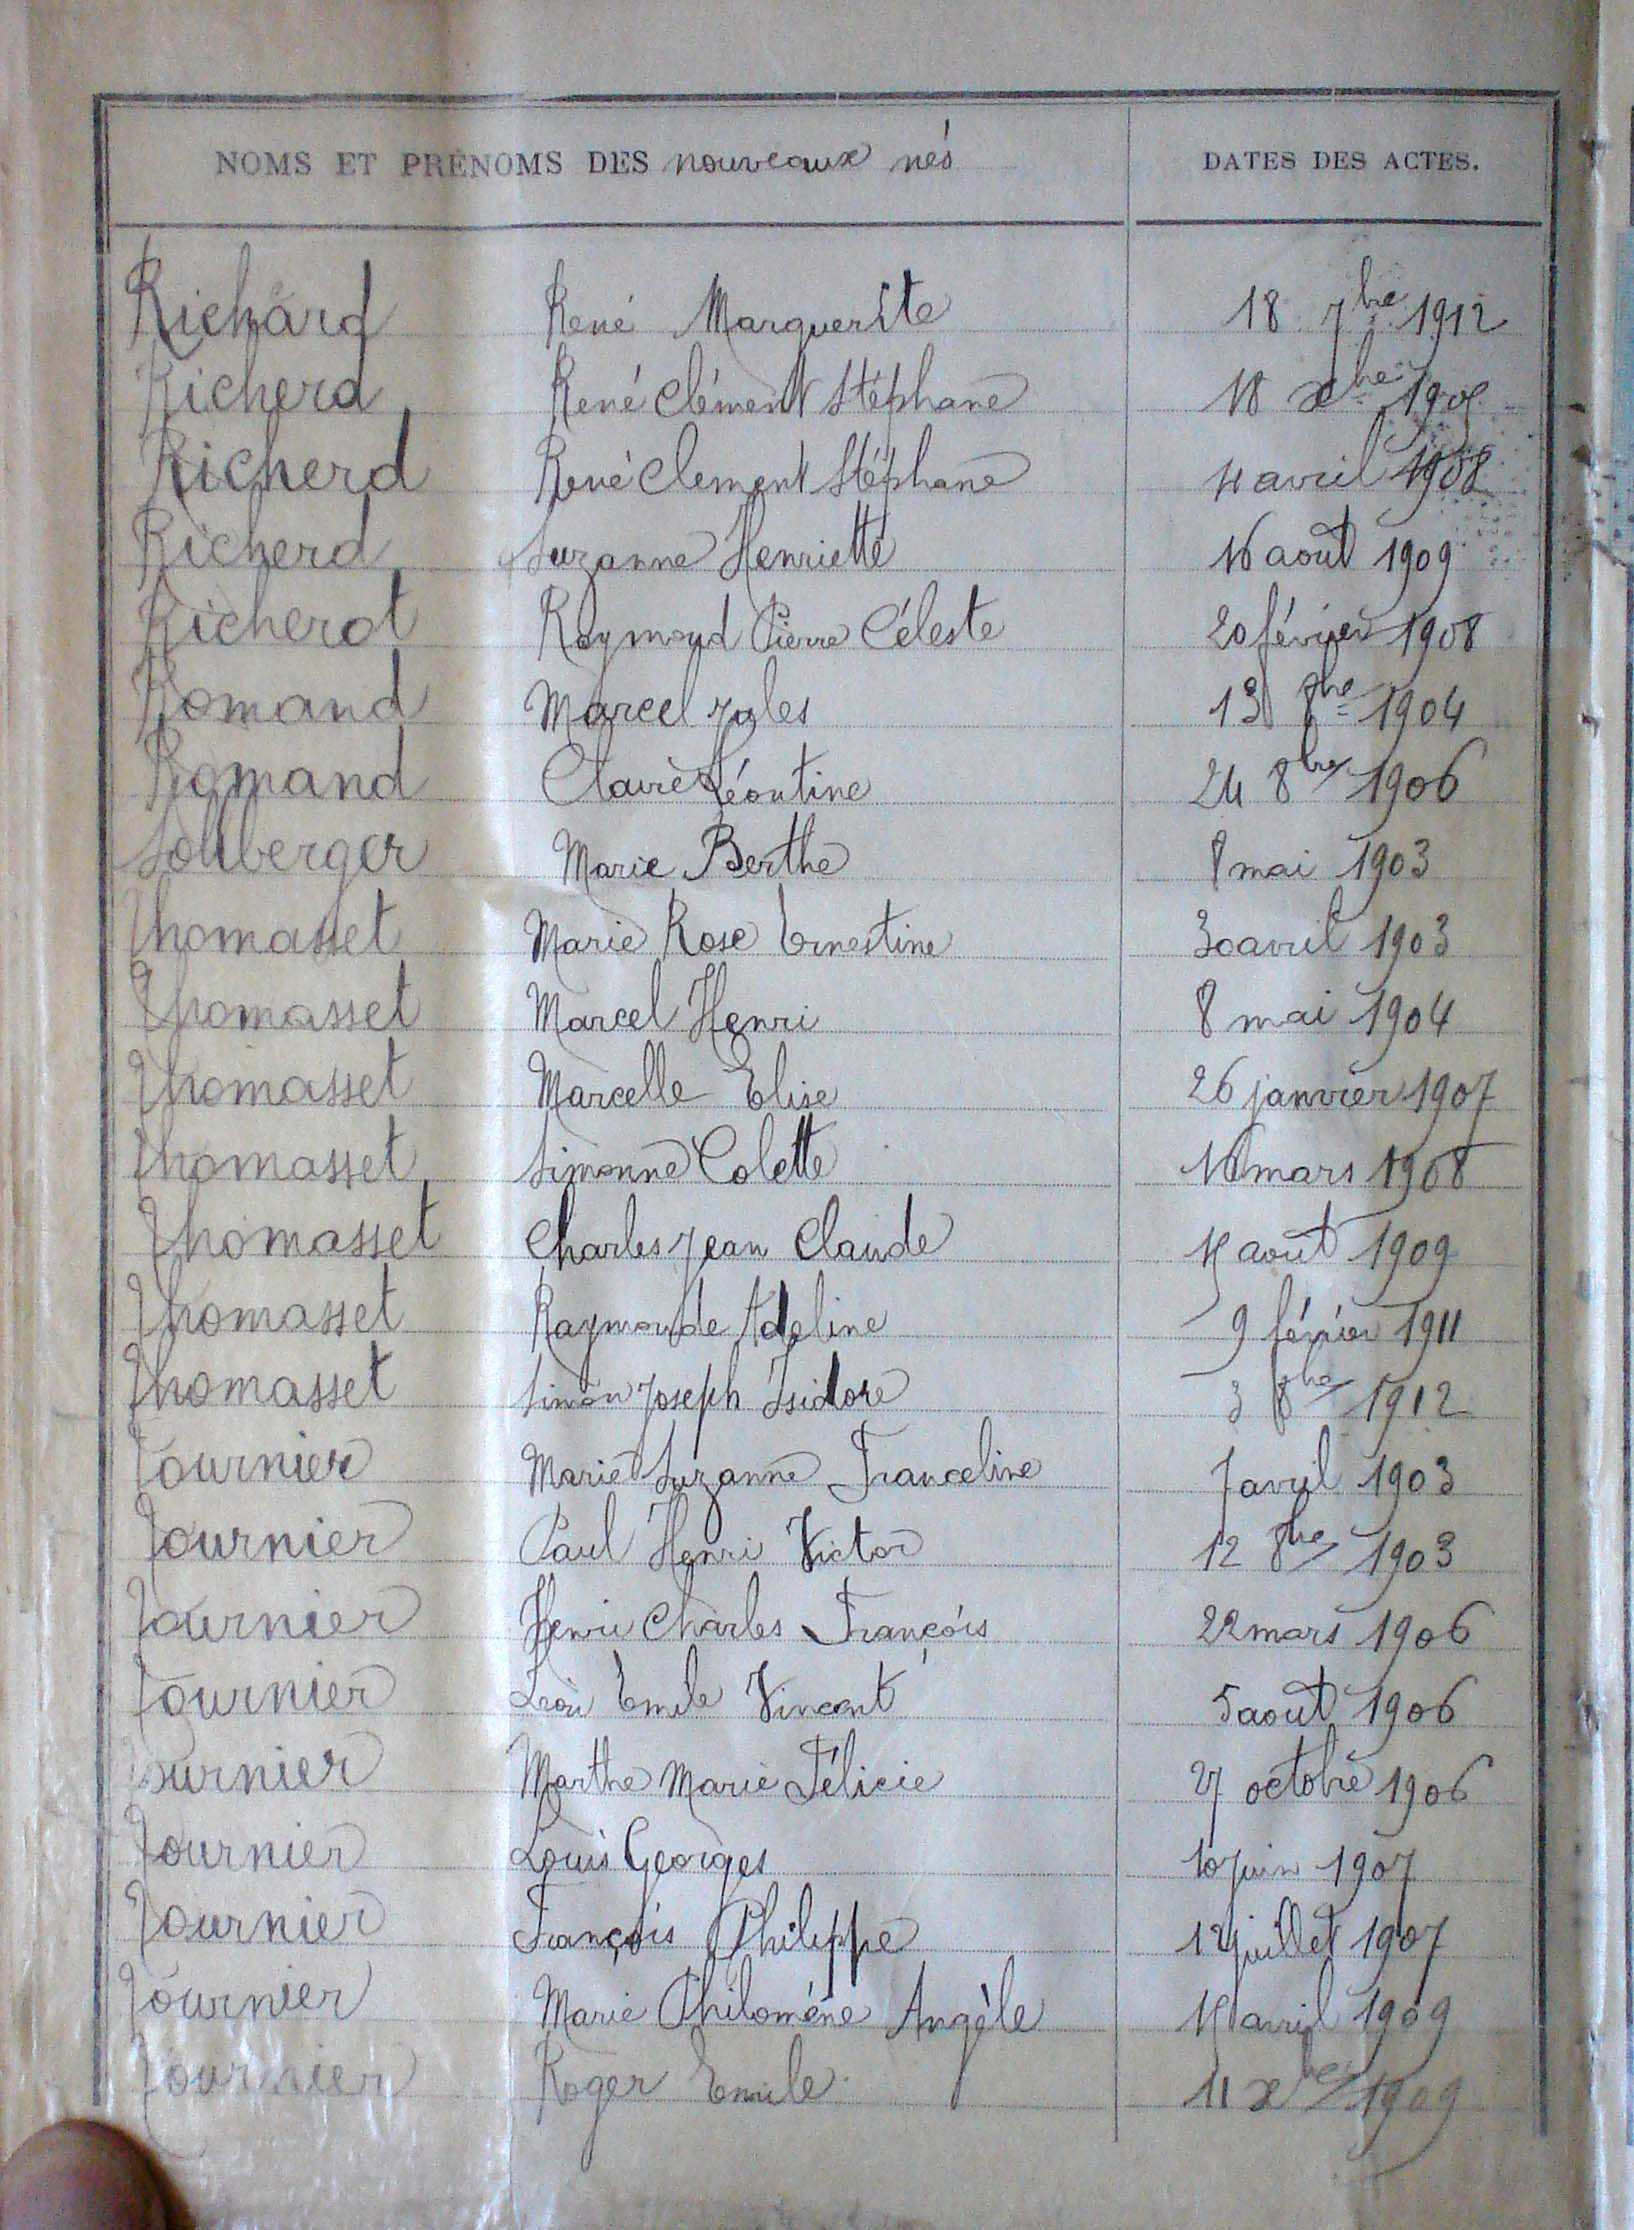 NOMS ET PRÉNOMS DES nouveaux nés DATES DES ACTES.
Richard René Marguerite 18 7bre 1912
Richerd René Clément Stéphane 18 xbre 1905
Richerd René Clement Stéphane 4 avril 1908
Richerd Suzanne Henriette 16 août 1909
Richerot Raymond Pierre Céleste 20 février 1908
Romand Marcel Jules 13 8bre 1904
Romand Claire Léontine 24 8bre 1906
Sohberger Marie Berthe 8 mai 1903
Thomasset Marie Rose Ernestine 30 avril 1903
Thomasset Marcel Henri 8 mai 1904
Thomasset Marcelle Elise 26 janvier 1907
Thomasset Simonne Colette 16 mars 1908
Thomasset Charles Jean Claude 15 août 1909
Thomasset Raymonde Adeline 9 février 1911
Thomasset Simon Joseph Isidore 3 8bre 1912
Tournier Marie Suzanne Franceline 7 avril 1903
Tournier Paul Henri Victor 12 8bre 1903
Tournier Henri Charles François 22 mars 1906
Tournier Léon Emile Vincent 5 août 1906
Tournier Marthe Marie Félicie 27 octobre 1906
Tournier Louis Georges 10 Juin 1907
Tournier François Philippe 12 juillet 1907
Tournier Marie Philomène Angèle 15 avril 1909
Tournier Roger Emile 11 xbre 1909